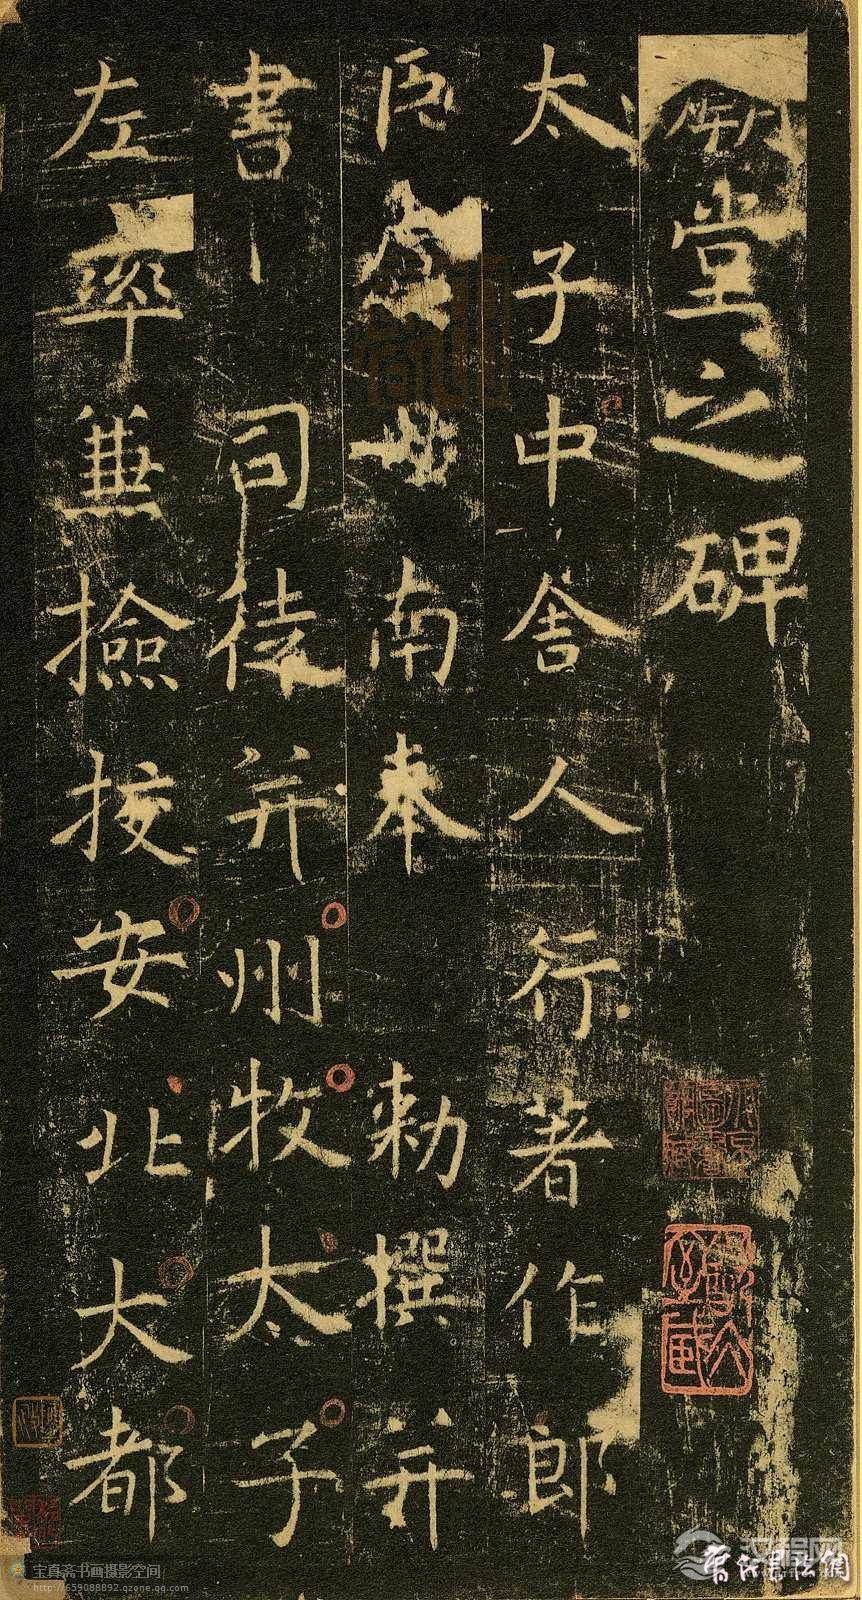 堂之碑
太子中舍人行著作郎
臣虞世南奉 勅撰并
書 司徒并州牧太子
左率兼撿挍安北大都
宝真斋书画摄影空间
http://659088892.qzone.qq.com
汉程网